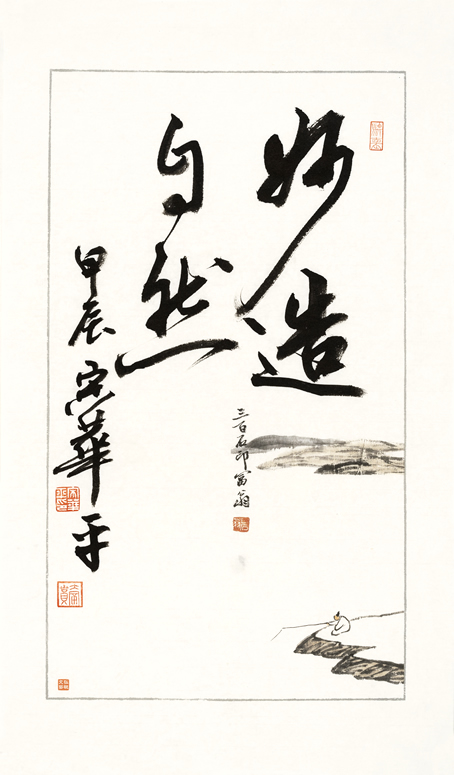 妙造
自然
甲辰 宋華平
三百石印富翁